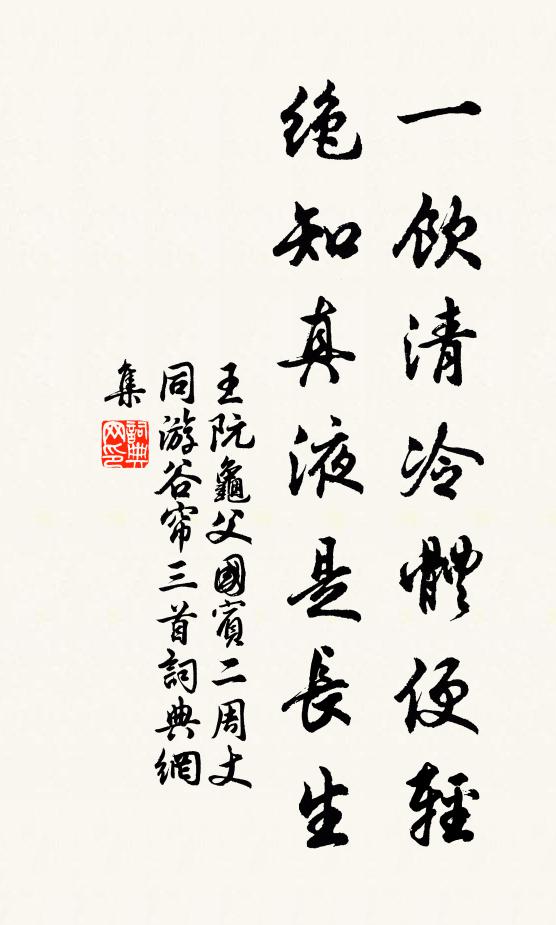 一飲清冷體便輕
絶知真液是長生
王阮龜父國賓二周丈
同游谷帘三首詞典網
集
詞典
网印